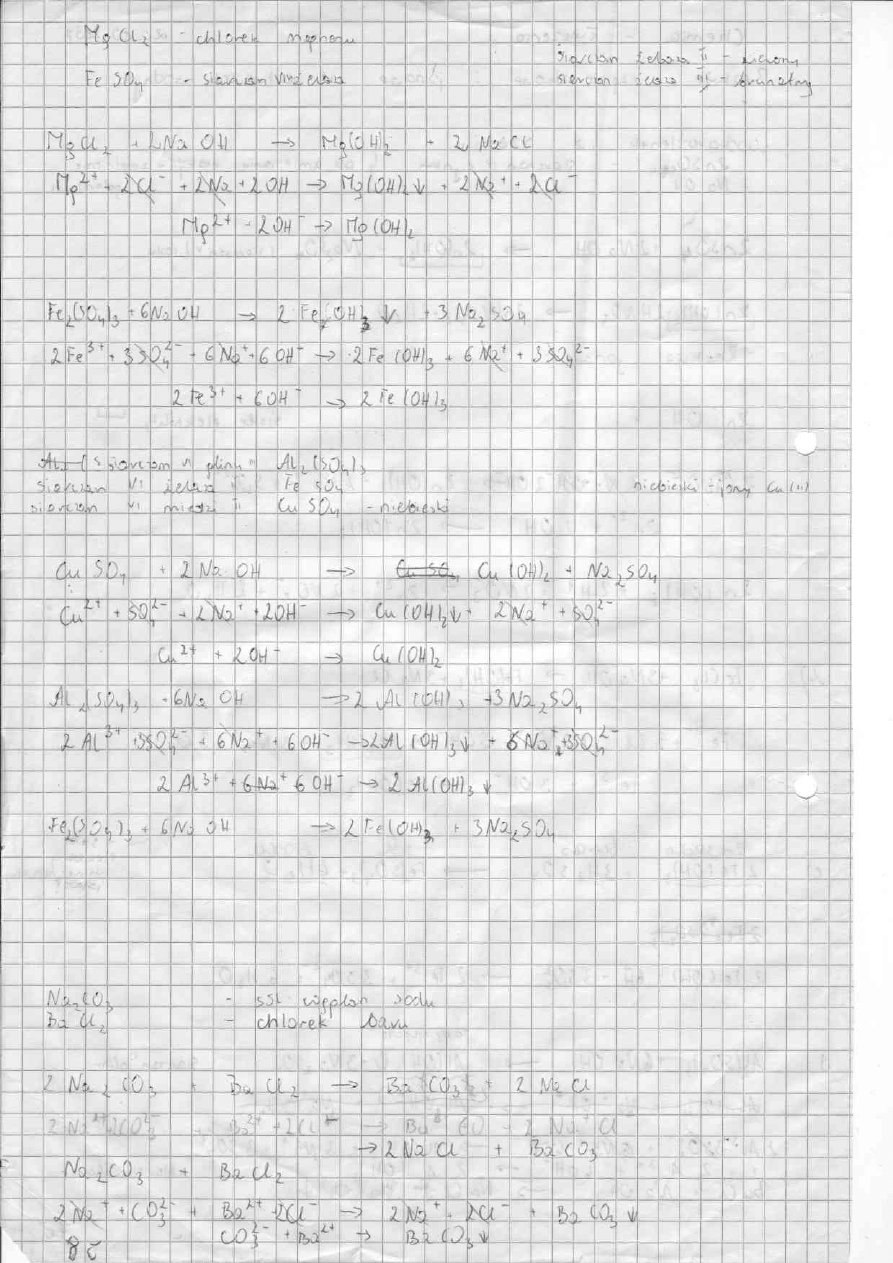 MgCl₂ - chlorek magnezu
siarczan żelaza II - zielony
FeSO₄ - siarczan VI żelaza
siarczan żelaza III - brunatny
MgCl₂ + 2NaOH → Mg(OH)₂ + 2NaCl
Mg²⁺ + 2Cl⁻ + 2Na + 2OH → Mg(OH)₂↓ + 2Na⁺ + 2Cl⁻
Mg²⁺ + 2OH⁻ → Mg(OH)₂
Fe₂(SO₄)₃ + 6NaOH → 2Fe(OH)₃↓ + 3Na₂SO₄
2Fe³⁺ + 3SO₄²⁻ + 6Na⁺ + 6OH⁻ → 2Fe(OH)₃ + 6Na⁺ + 3SO₄²⁻
2Fe³⁺ + 6OH⁻ → 2Fe(OH)₃
siarczan VI glinu Al₂(SO₄)₃
siarczan VI żelaza II FeSO₄ niebieski - jony Cu(II)
siarczan VI miedzi II CuSO₄ - niebieski
CuSO₄ + 2NaOH → Cu SO₄ Cu(OH)₂ + Na₂SO₄
Cu²⁺ + SO₄²⁻ + 2Na⁺ + 2OH⁻ → Cu(OH)₂↓ + 2Na⁺ + SO₄²⁻
Cu²⁺ + 2OH⁻ → Cu(OH)₂
Al₂(SO₄)₃ + 6NaOH → 2Al(OH)₃ + 3Na₂SO₄
2Al³⁺ + 3SO₄²⁻ + 6Na⁺ + 6OH⁻ → 2Al(OH)₃↓ + 6Na⁺ + 3SO₄²⁻
2Al³⁺ + 6Na⁺ 6OH⁻ → 2Al(OH)₃↓
Fe₂(SO₄)₃ + 6NaOH → 2Fe(OH)₃ + 3Na₂SO₄
Na₂CO₃ - węglan sodu
BaCl₂ - chlorek baru
2Na₂CO₃ + BaCl₂ → Ba(CO₃)₂ + 2NaCl
→ 2NaCl + BaCO₃
Na₂CO₃ + BaCl₂
2Na⁺ + CO₃²⁻ + Ba²⁺ + 2Cl⁻ → 2Na⁺ + 2Cl⁻ + BaCO₃↓
CO₃²⁻ + Ba²⁺ → BaCO₃↓